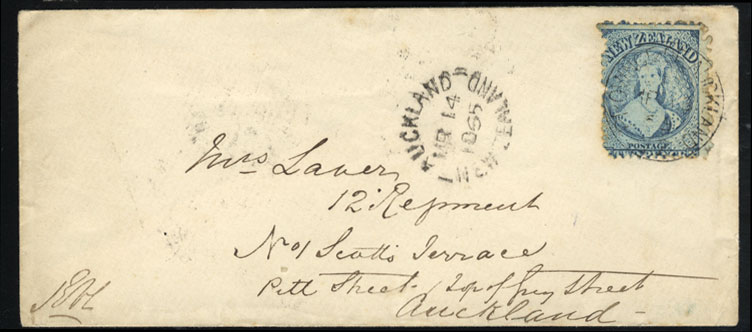 NEW ZEALAND
POSTAGE
AUCKLAND
MR 14
1865
Mrs Laver
12 Regiment
No 1 Scotts Terrace
Pitt Street top of Grey Street
Auckland